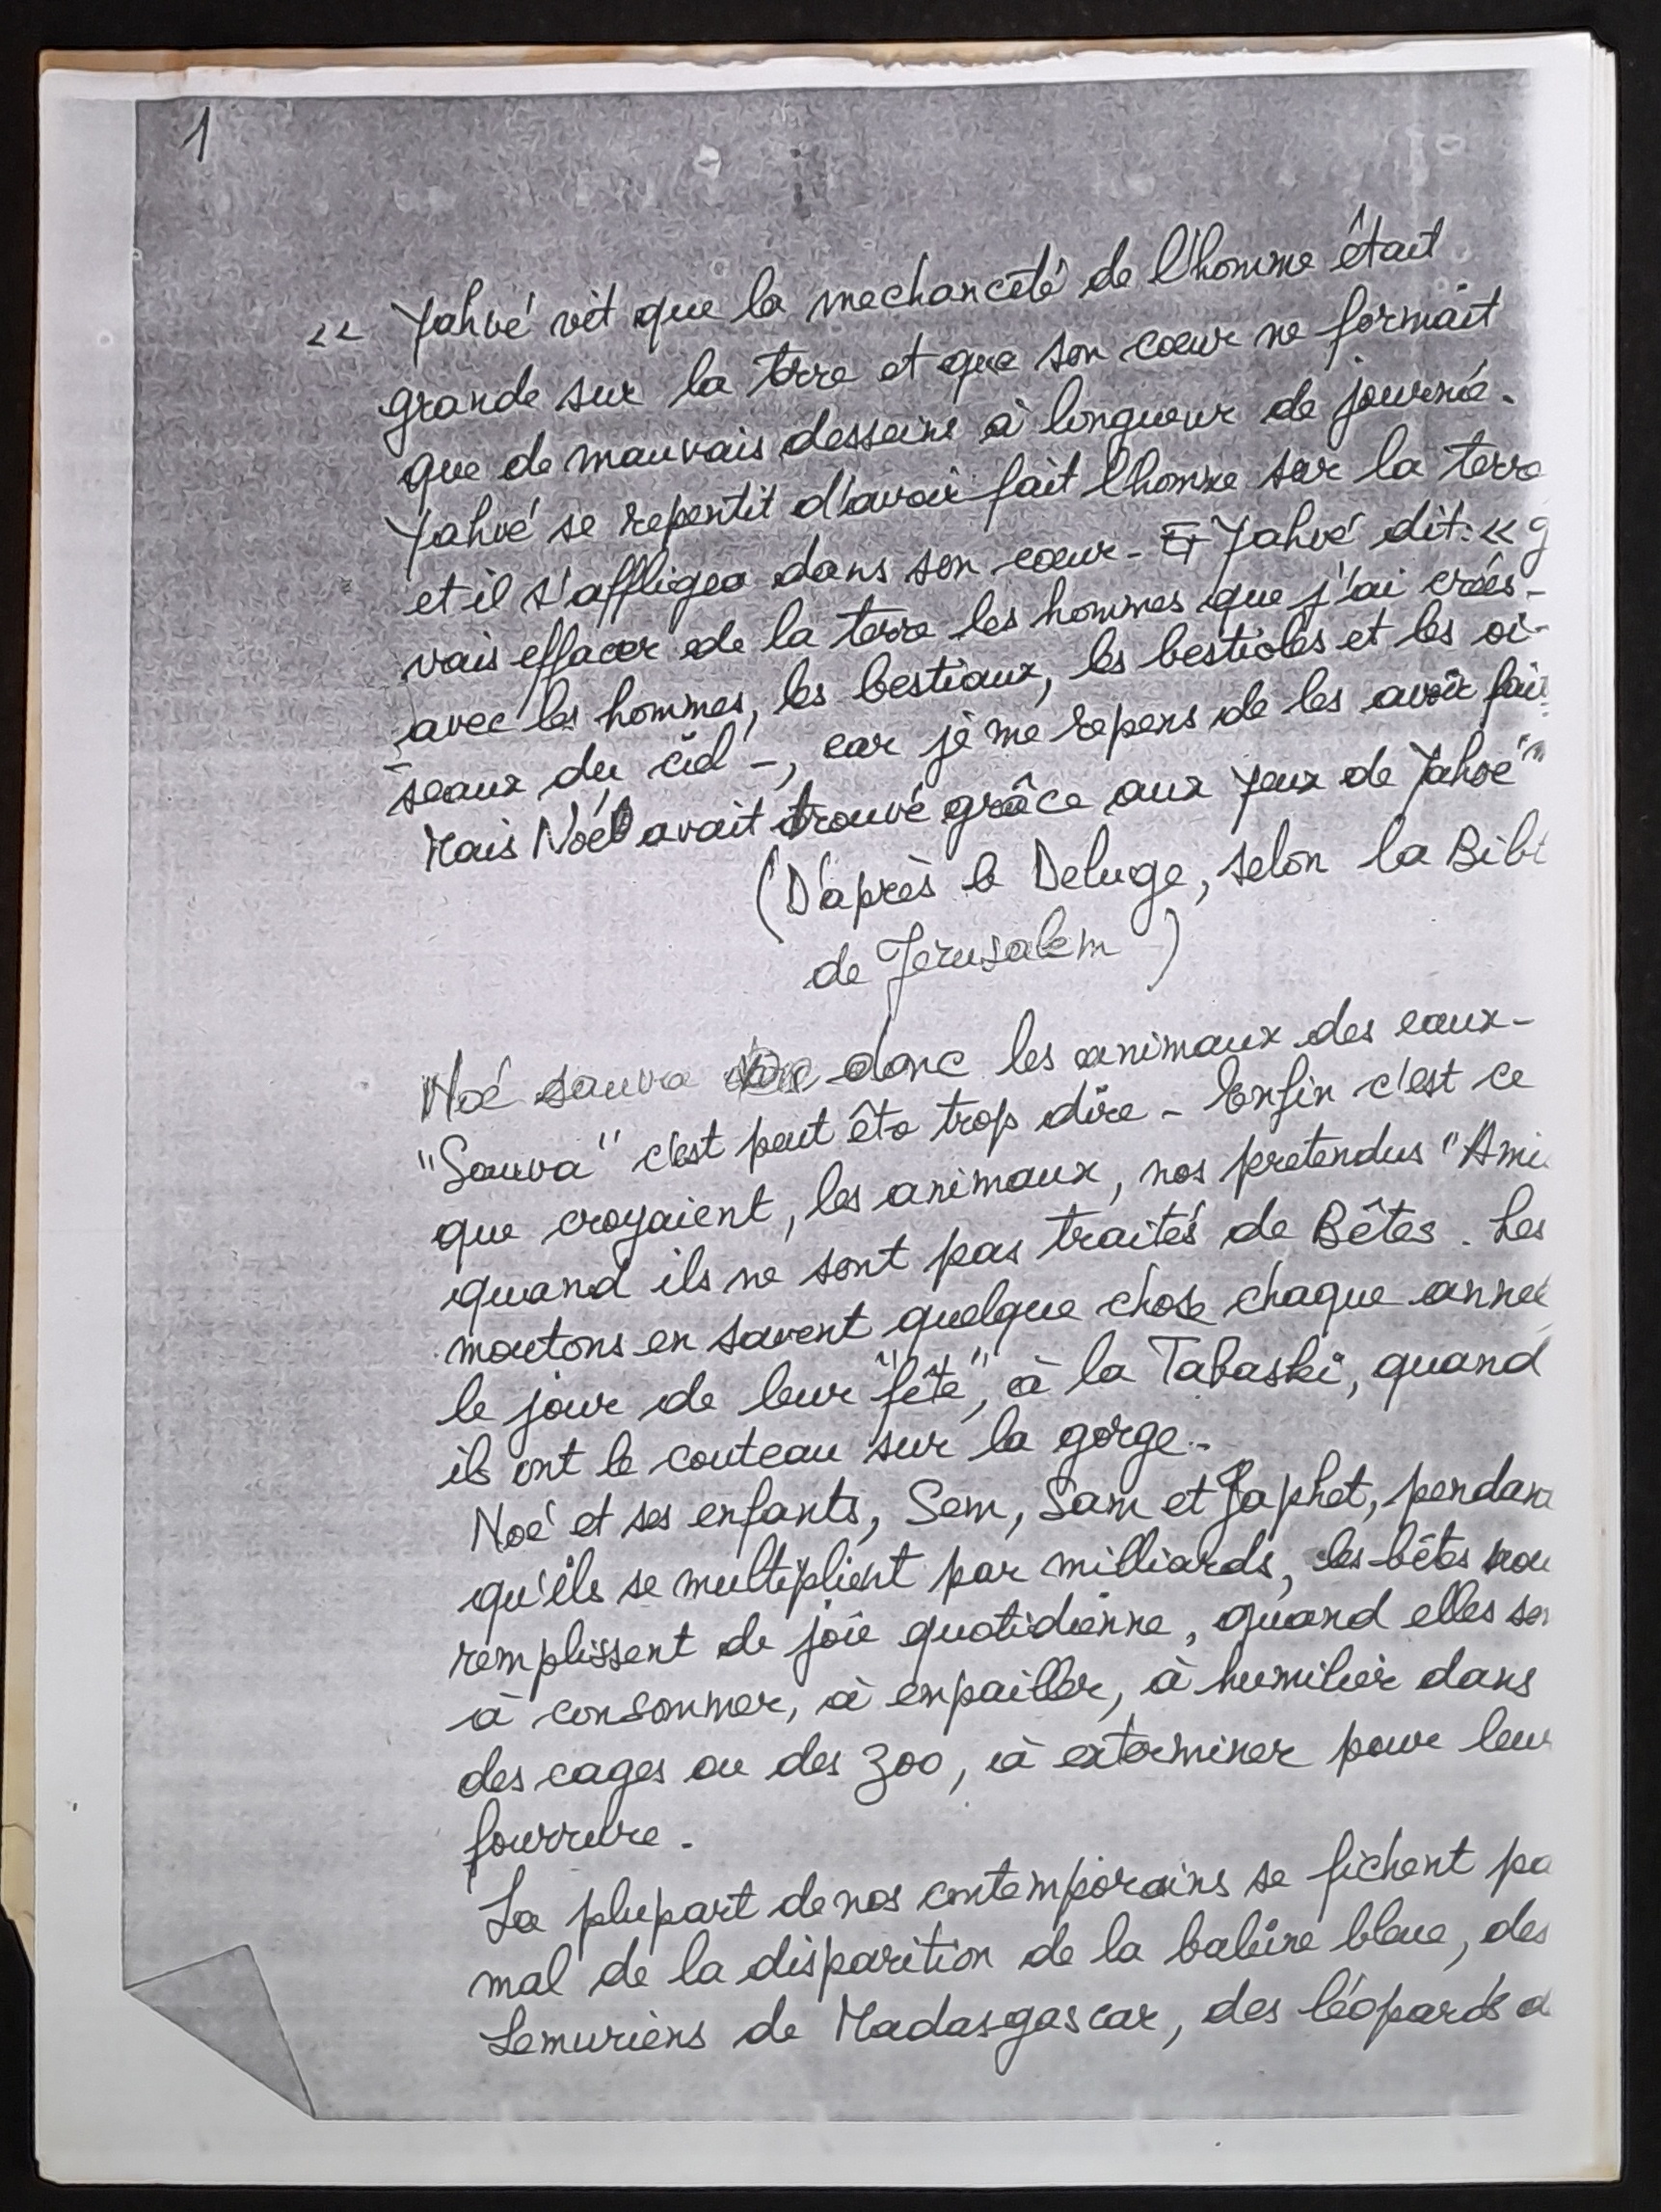 1
<< Yahvé vit que la mechanceté de l'homme était
grande sur la terre et que son cœur ne formait
que de mauvais desseins à longueur de journée.
Yahvé se repentit d'avoir fait l'homme sur la terre
et il s'affligea dans son cœur - Et Yahvé dit: <<
vais effacer de la terre les hommes que j'ai créés -
avec les hommes, les bestiaux, les bestioles et les oi-
seaux du ciel -, car je me repens de les avoir fai
Mais Noé avait trouvé grâce aux yeux de Yahvé"
(D'après le Deluge, selon la Bibl
de Jerusalem)
Noé sauva donc les animaux des eaux -
"Sauva" c'est peut être trop dire - Enfin c'est ce
que croyaient, les animaux, nos pretendus "Ami
quand ils ne sont pas traités de Bêtes. Les
moutons en savent quelque chose chaque année
le jour de leur "fête", à la Tabaski, quand
ils ont le couteau sur la gorge.
Noé et ses enfants, Sem, Sam et Japhet, pendan
qu'ils se multiplient par milliards, les bêtes nou
remplissent de joie quotidienne, quand elles son
à consommer, à empailler, à humilier dans
des cages ou des zoo, à exterminer pour leur
fourrure -
La plupart de nos contemporains se fichent pa
mal de la disparition de la baleine bleue, des
Lemuriens de Madasgascar, des léopards d